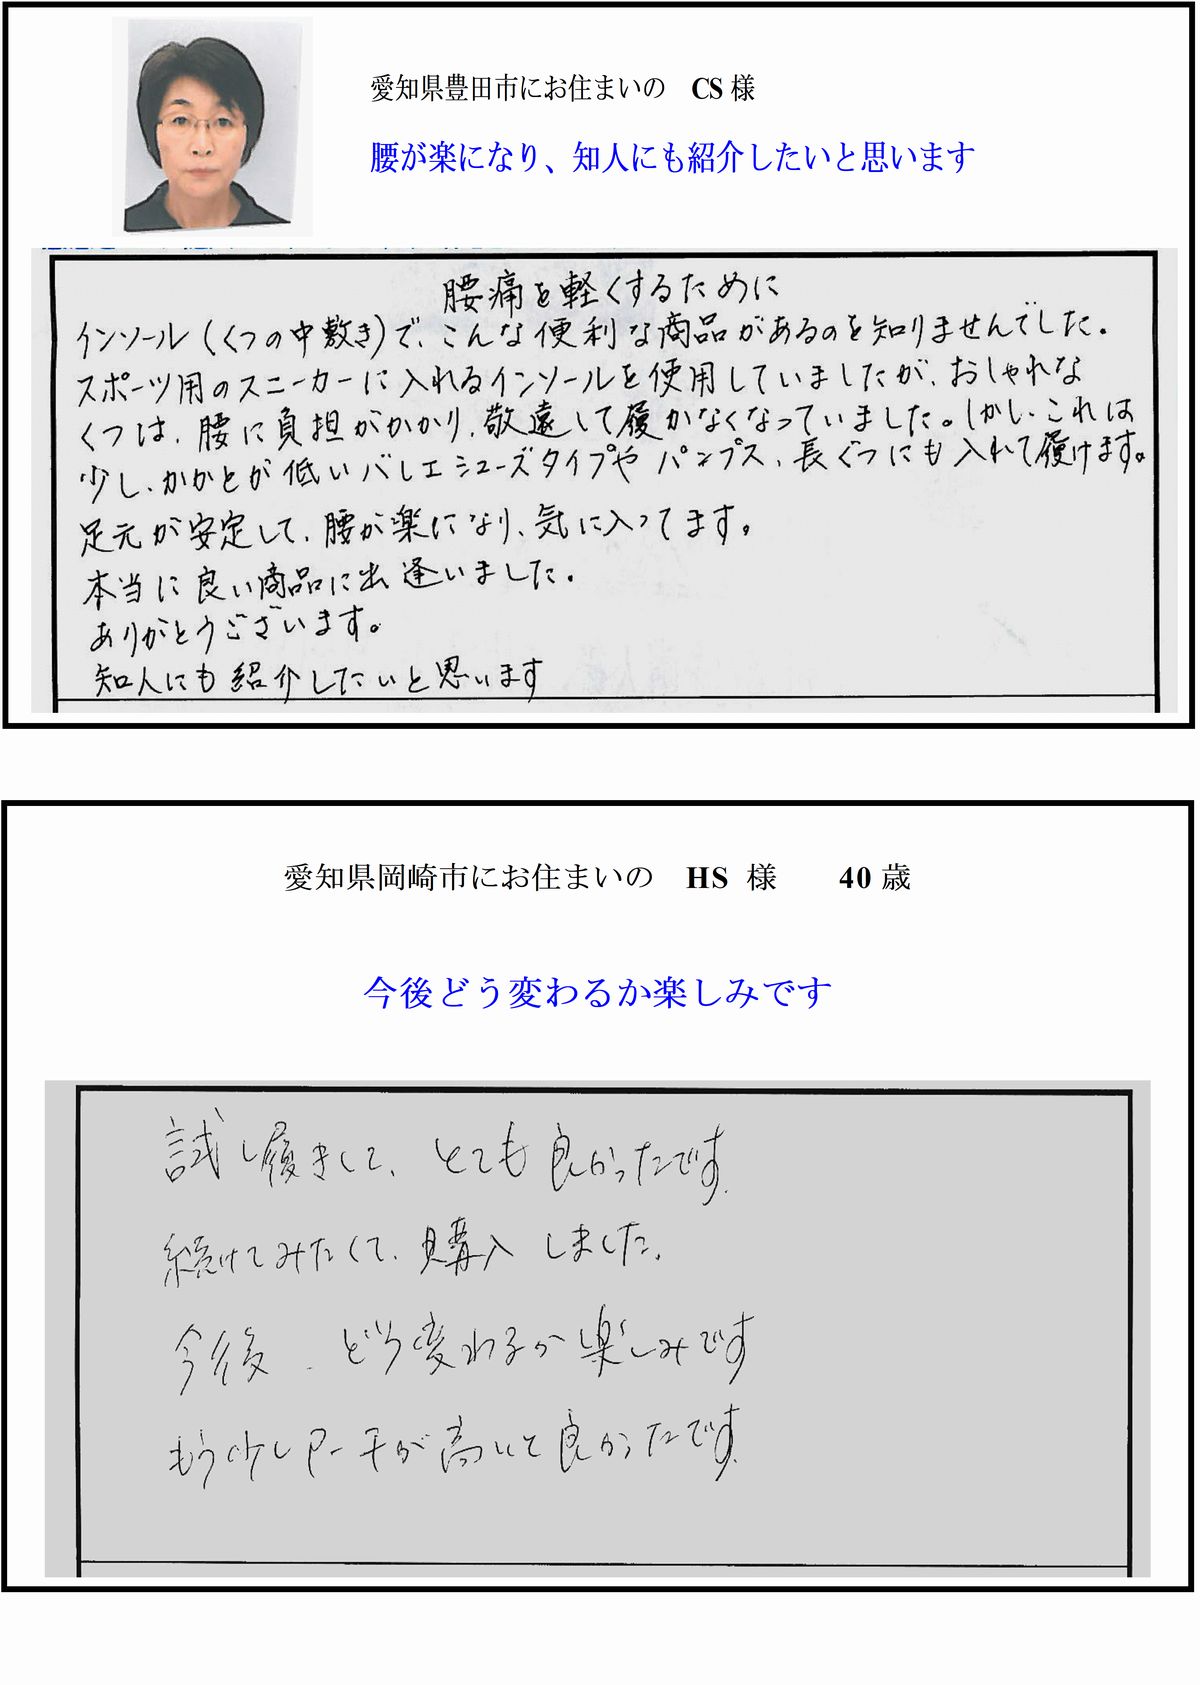 愛知県豊田市にお住まいの　CS 様
腰が楽になり、知人にも紹介したいと思います
腰痛を軽くするために
インソール(くつの中敷き)で、こんな便利な商品があるのを知りませんでした。
スポーツ用のスニーカーに入れるインソールを使用していましたが、おしゃれな
くつは、腰に負担がかかり、敬遠して履かなくなっていました。しかし、これは
少し、かかとが低いバレエシューズタイプや パンプス、長ぐつにも入れて履けます。
足元が安定して、腰が楽になり、気に入ってます。
本当に良い商品に出逢いました。
ありがとうございます。
知人にも紹介したいと思います
愛知県岡崎市にお住まいの　HS 様　40 歳
今後どう変わるか楽しみです
試し履きして、とても良かったです。
続けてみたくて、購入しました。
今後、どう変わるか楽しみです
もう少しアーチが高いと良かったです。